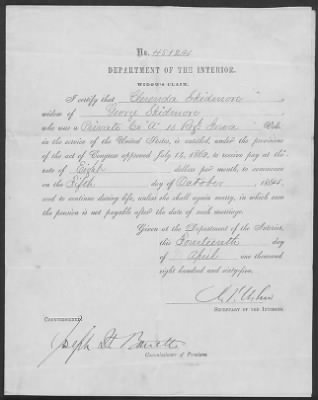 No. 45121
DEPARTMENT OF THE INTERIOR.
WIDOW'S CLAIM.
I certify that Clerenda Skidmore
widow of George Skidmore
who was a Private Co "A" 10 Regt Iowa Vols
in the service of the United States, is entitled, under the provisions
of the act of Congress approved July 14, 1862, to receive pay at the
rate of Eight dollars per month, to commence
on the Fifth day of October, 1864,
and to continue during life, unless she shall again marry, in which event
the pension is not payable after the date of such marriage.
Given at the Department of the Interior,
this Fourteenth day
of April one thousand
eight hundred and sixty-five.
SECRETARY OF THE INTERIOR.
COUNTERSIGNED,
Joseph H Barrett
Commissioner of Pensions.